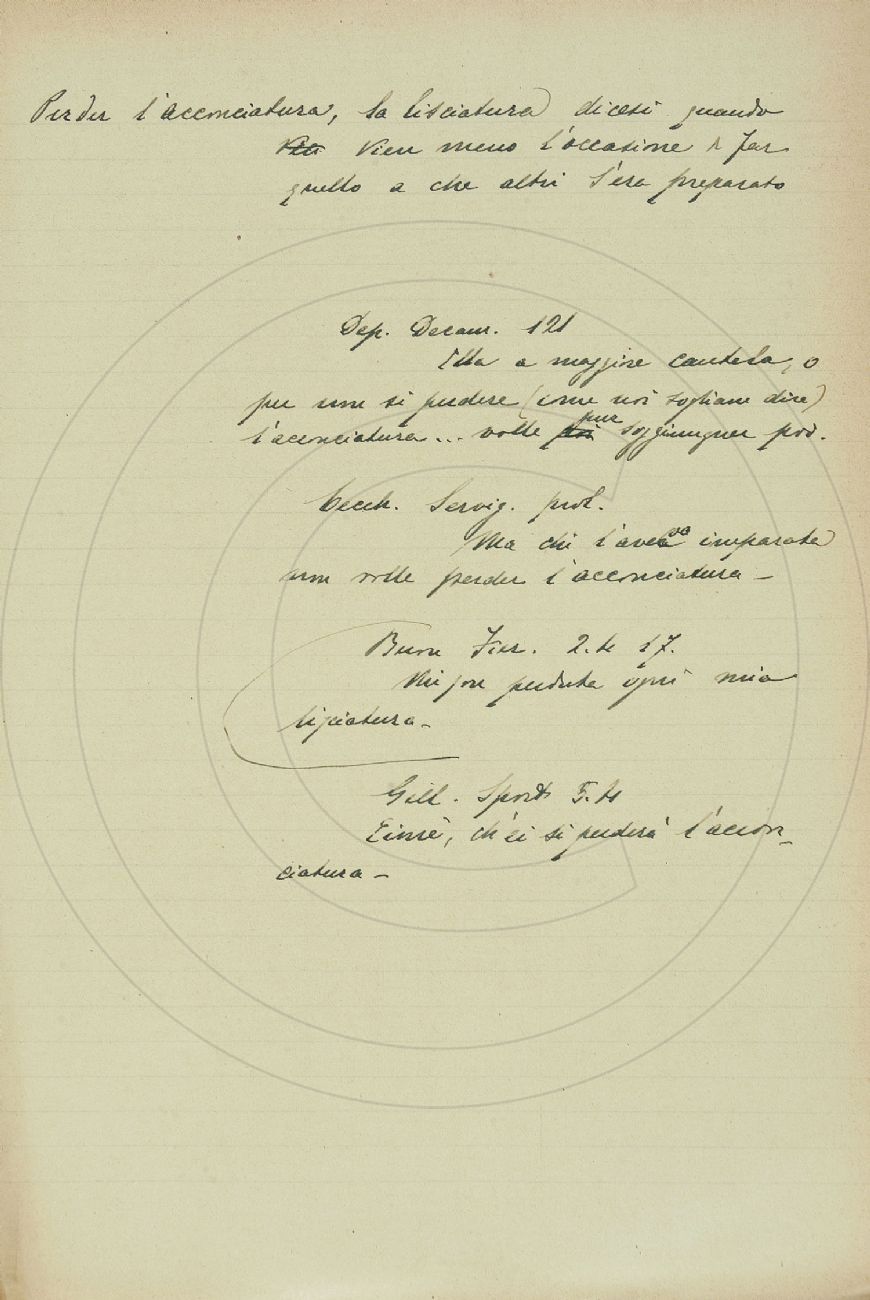 Perder l'acconciatura, la lisciatura dicesi quando
vien meno l'occasione di far
quello a che altri s'era preparato
Dep. Decam. 121
Ella a maggiore cautela, o
per non si perdere (come noi sogliamo dire)
l'acconciatura... volle pur soggiungner poi.
Cecch. Servig. prol.
Ma chi l'aveva imparata
non volle perder l'acconciatura –
Buon. Fier. 2. 4. 17.
Mi son perduta ogni mia
lisciatura –
Gell. Sport. 5. 4
Eimè, ch'ei si perderà l'accon-
ciatura –